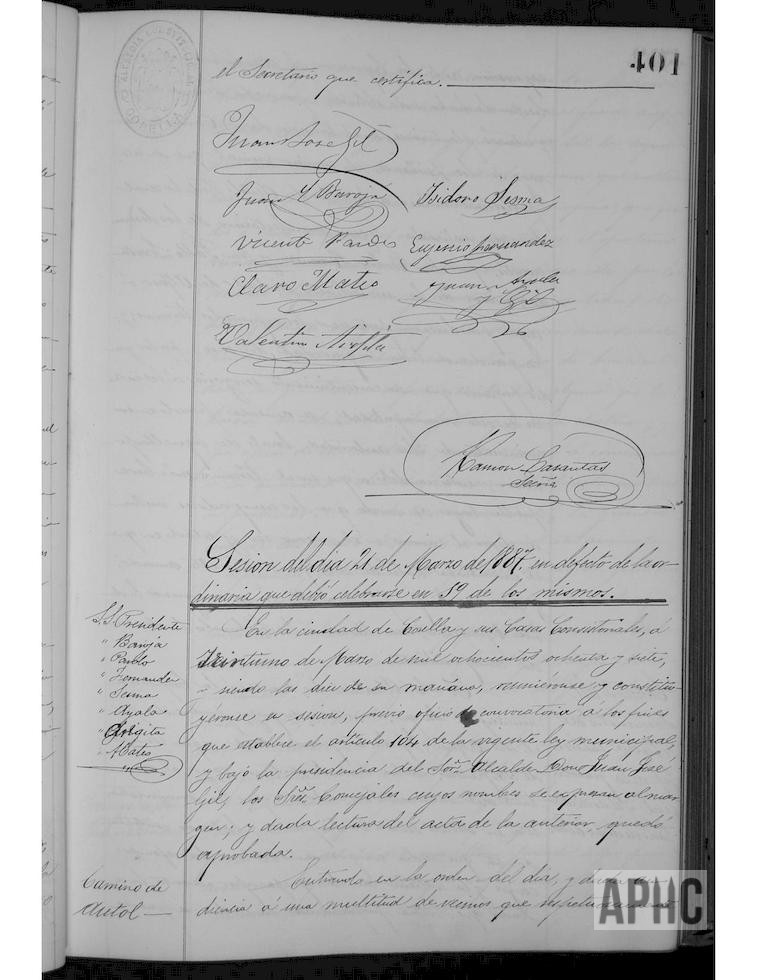 401
el Secretario que certifica.
Juan José Gil
Juan Y Baroja
Isidoro Sesma
Vicente Pardo
Eugenio Fernandez
Claro Mateo
Juan Ayala
y Gil
Valentin
Ramon
Secrio
Sesion del dia 21 de Marzo de 1887. en defecto de la or-
dinaria que debió celebrarse en 19 de los mismos.
S.S. Presidente
" Baroja
" Pardo
" Fernandez
" Sesma
" Ayala
" Mateo
En la ciudad de Corella y sus Casas Consistoriales, á
de Marzo de mil ochocientos ochenta y siete,
siendo las diez de su mañana, reuniéronse y constitu-
yéronse en sesion, previo oficio de convocatoria á los fines
que establece el artículo 104 de la vigente ley municipal,
y bajo la presidencia del Sor. Alcalde Dono Juan José
Gil, los Sres. Concejales cuyos nombres se expresan al mar
gen; y dada lectura del acta de la anterior, quedó
aprobada.
Camino de
Autol —
Entrando en la orden del dia, y dada au-
diencia á una multitud de vecinos que
APHC